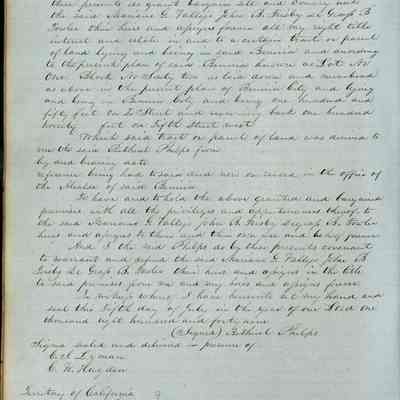 these presents do grant bargain sell and convey unto
the said Mariano G. Vallejo John B. Frisby De Grasse B.
Fowler their heirs and assigns forever all my right title
interest and estate in and to a certain tract or parcel
of land lying and being in said Benicia and according
to the present plan of said Benicia known as Lot No
One Block No Sixty two as laid down and numbered
as above in the present plan of Benicia City and lying
and being in Benicia City and being one hundred and
fifty feet on I Street and running back one hundred
feet on Fifth Street west
Which said tract or parcel of land was deeded to
me the said Bethuel Phelps from
by deed bearing date
reference being had to said deed now on record in the office of
the Alcalde of said Benicia
To have and to hold the above granted and bargained
premises with all the privileges and appurtenances thereof to
the said Mariano G. Vallejo John B. Frisby Degrasse B. Fowler
heirs and assigns to their and their own use and behoof forever
And I the said Phelps do by these presents covenant
to warrant and defend the said Mariano G. Vallejo John B
Frisby De Grasse B. Fowler their and assigns in the title
to said premises from me and my heirs and assigns forever
In testimony whereof I have hereunto set my hand and
seal this Fifth day of July in the year of our Lord one
thousand eight hundred and forty nine
(Signed) Bethuel Phelps
Signed sealed and delivered in presence of
C. E. Lyman
C. W. Hayden
Territory of California